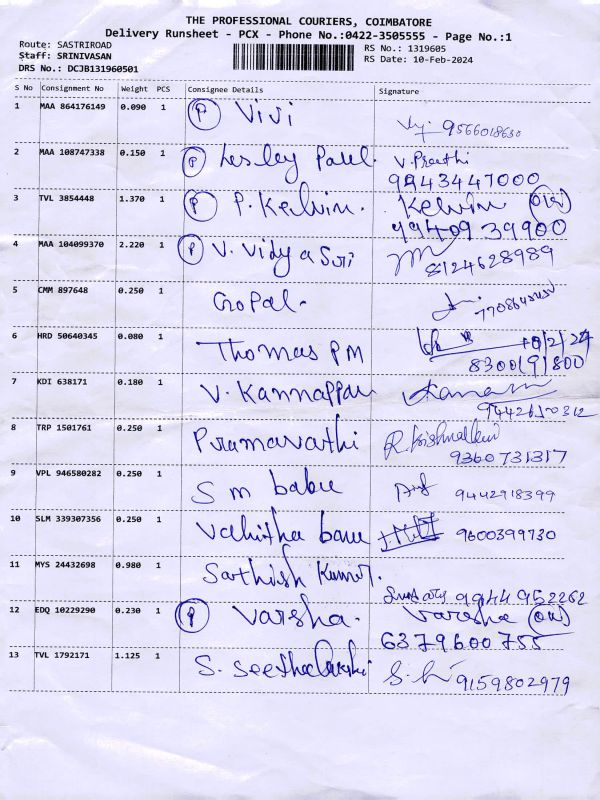 THE PROFESSIONAL COURIERS, COIMBATORE
Delivery Runsheet - PCX - Phone No.:0422-3505555 - Page No.:1
Route: SASTRIROAD RS No.: 1319605
Staff: SRINIVASAN RS Date: 10-Feb-2024
DRS No.: DCJB131960501
S No Consignment No Weight PCS Consignee Details Signature
1 MAA 864176149 0.090 1 P Vivi 9566018630
2 MAA 108747338 0.150 1 P Lesley Paul. V. Preethi
9443447000
3 TVL 3854448 1.370 1 P P. Kelvin. Kelvin
9940939900
4 MAA 104099370 2.220 1 P V. Vidya Sri 8124628989
5 CMM 897648 0.250 1 Gopal.
6 HRD 50640345 0.080 1 Thomas PM 10/2/24
8300191800
7 KDI 638171 0.180 1 V. Kannappan
8 TRP 1501761 0.250 1 Pramavathi
9360731317
9 VPL 946580282 0.250 1 S m babu 9442918399
10 SLM 339307356 0.250 1 Vahitha banu 9600399730
11 MYS 24432698 0.980 1 Sathish Kumar.
9944952262
12 EDQ 10229290 0.230 1 P Varsha. Varsha
6379600755
13 TVL 1792171 1.125 1 S. Seethalakshmi 9159802979